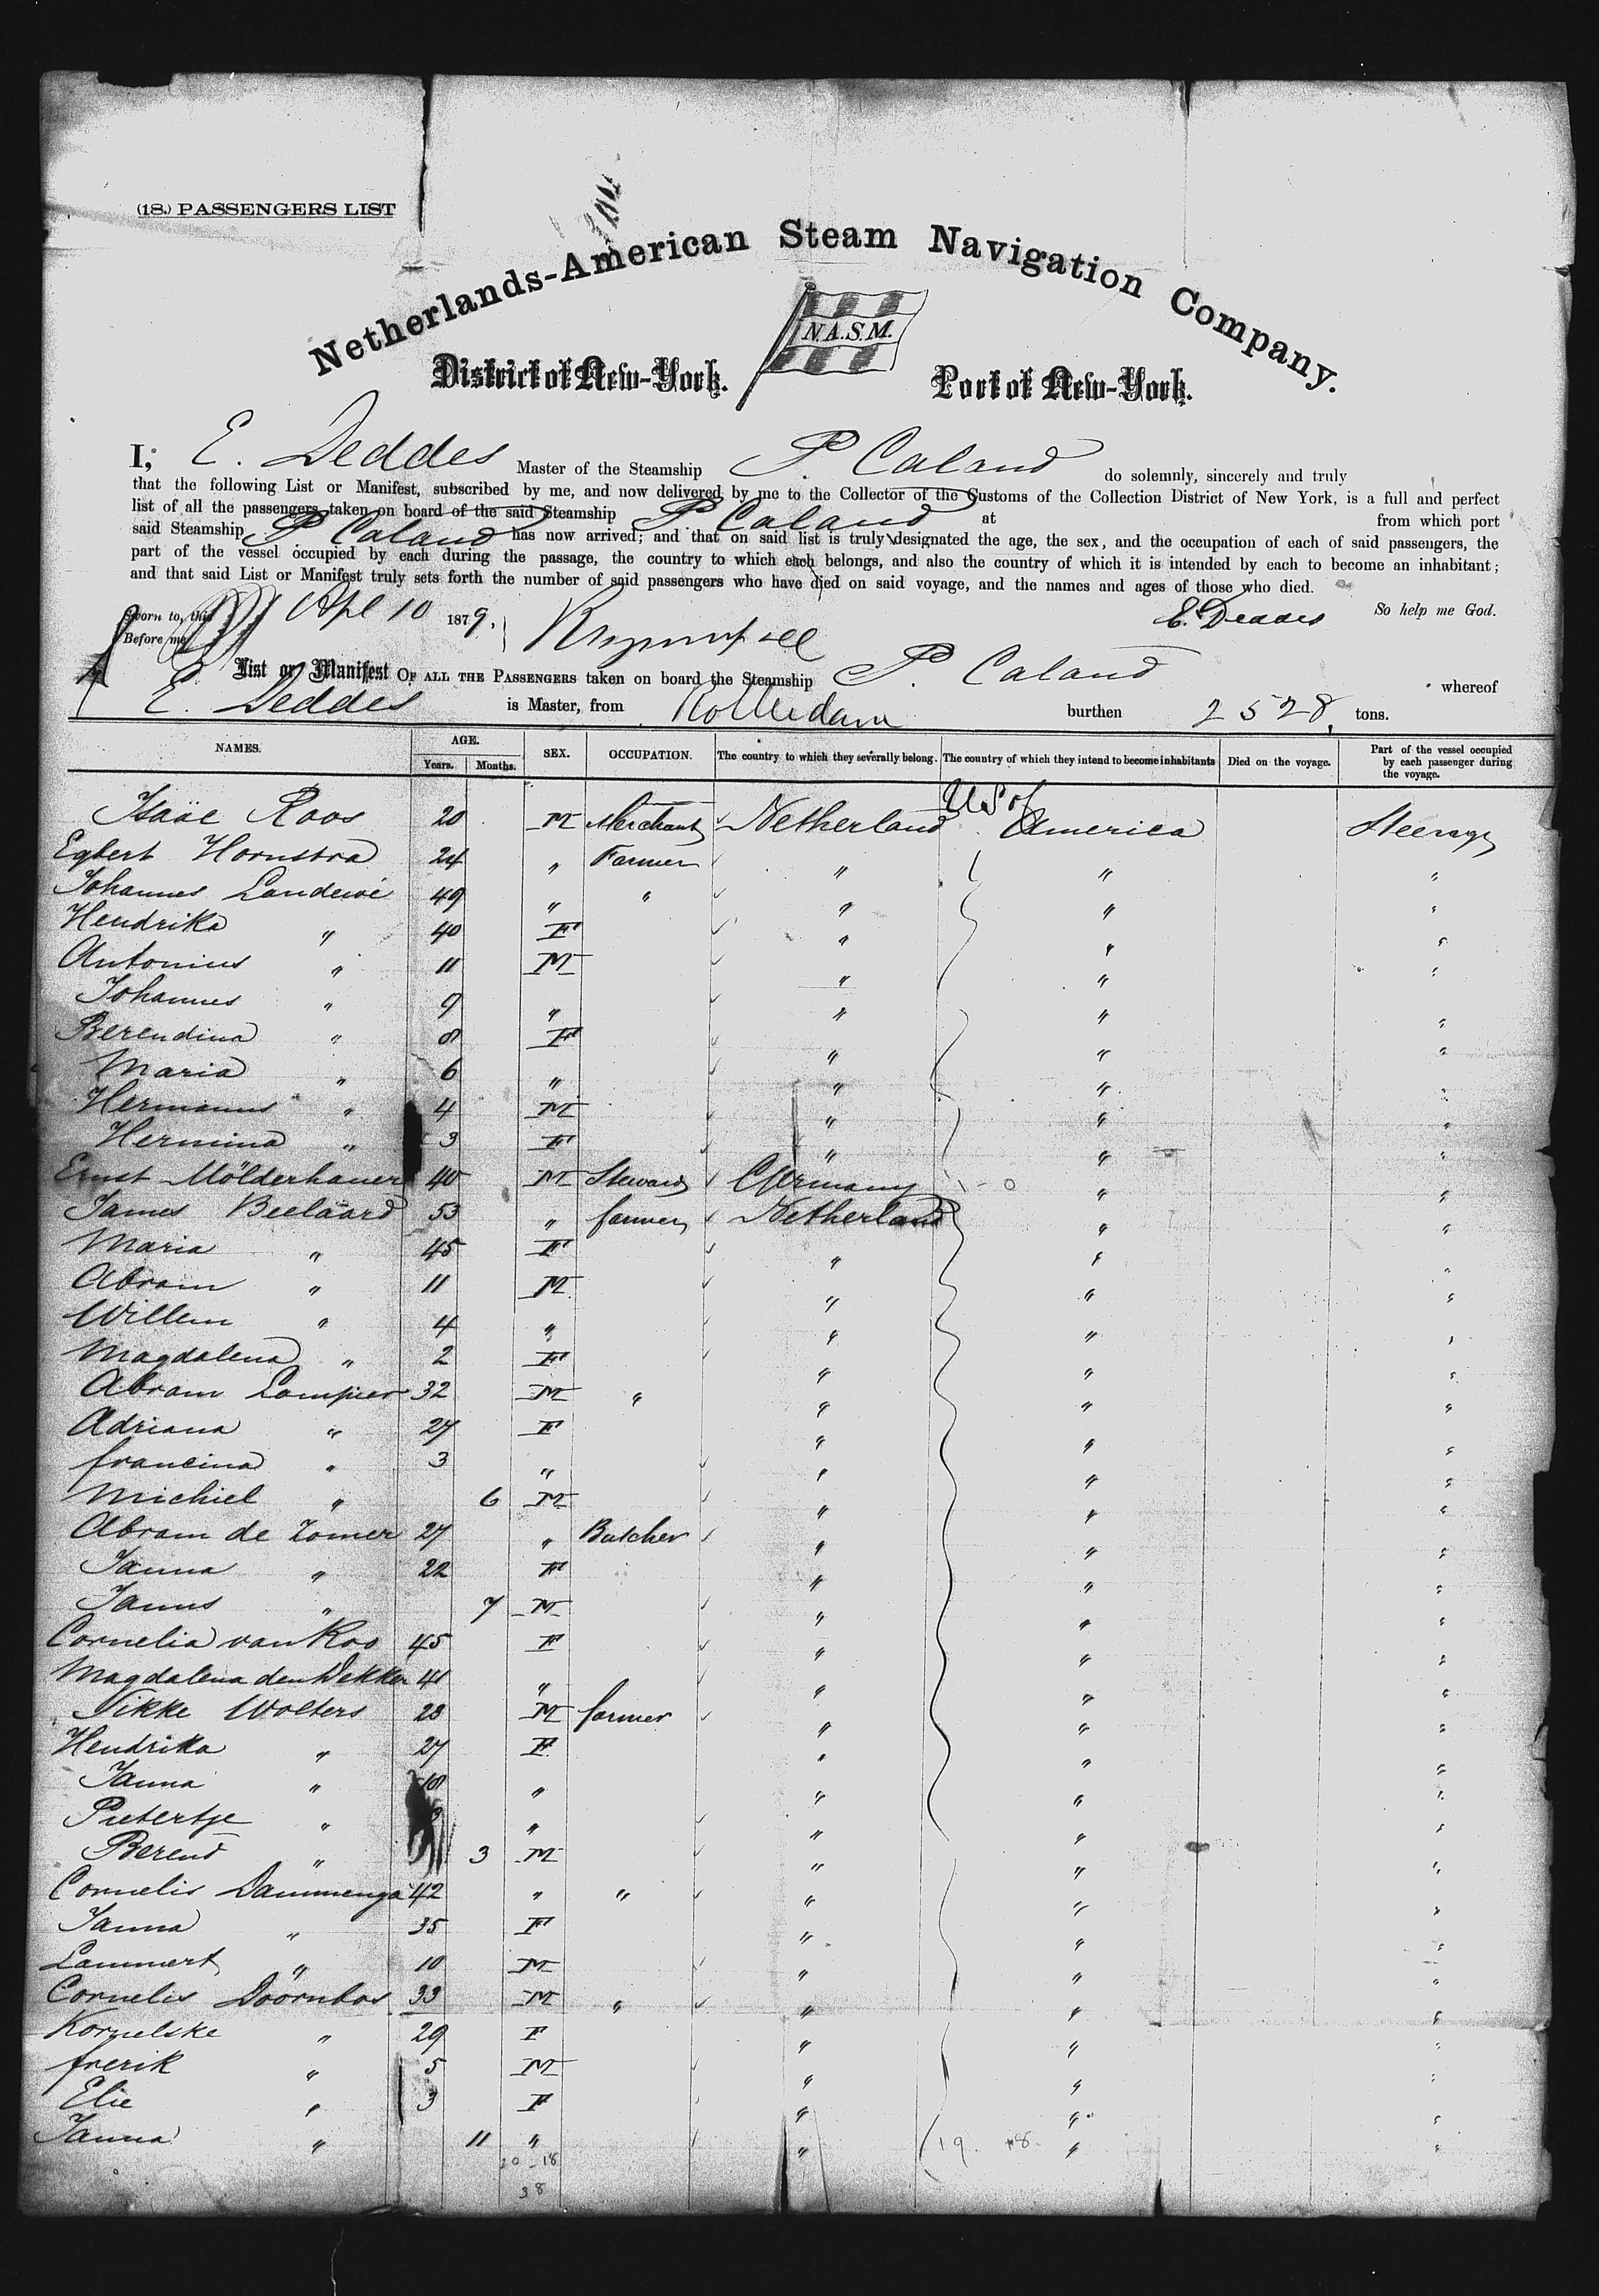 (18.) PASSENGERS LIST
Netherlands-American Steam Navigation Company.
N.A.S.M.
District of New-York. Port of New-York.
I; E. Deddes Master of the Steamship P. Caland do solemnly, sincerely and truly
that the following List or Manifest, subscribed by me, and now delivered by me to the Collector of the Customs of the Collection District of New York, is a full and perfect
list of all the passengers taken on board of the said Steamship P. Caland at from which port
said Steamship P Caland has now arrived; and that on said list is truly designated the age, the sex, and the occupation of each of said passengers, the
part of the vessel occupied by each during the passage, the country to which each belongs, and also the country of which it is intended by each to become an inhabitant;
and that said List or Manifest truly sets forth the number of said passengers who have died on said voyage, and the names and ages of those who died.
Sworn to, this Apl 10 1879, E. Deddes So help me God.
Before me
List or Manifest OF ALL THE PASSENGERS taken on board the Steamship P. Caland whereof
E. Deddes is Master, from Rotterdam burthen 2528 tons.
NAMES. AGE. Years. Months. SEX. OCCUPATION. The country to which they severally belong. The country of which they intend to become inhabitants Died on the voyage. Part of the vessel occupied by each passenger during the voyage.
Isaäc Roos 20 M Merchant Netherland US of America Steerage
Egbert Hornstra 24 " Farmer " " "
Johannes Landewé 49 " " " " "
Hendrika " 40 F " " "
Antonius " 11 M " " "
Johannes " 9 " " " "
Berendina " 8 F " " "
Maria " 6 " " " "
Hermanus " 4 M " " "
Hermina " 3 F " " "
Ernst Mölderhauer 40 M Steward Germany " "
James Beelaard 53 " farmer Netherland " "
Maria " 45 F " " "
Abram " 11 M " " "
Willem " 4 " " " "
Magdalena " 2 F " " "
Abram Lampier 32 M " " " "
Adriana " 27 F " " "
francina " 3 " " " "
Michiel " 6 M " " "
Abram de Zomer 27 " Butcher " " "
Janna " 22 F " " "
Janus " 7 M " " "
Cornelia van Roo 45 F " " "
Magdalena den Dekker 41 " " " "
Nikke Wolters 28 M farmer " " "
Hendrika " 27 F " " "
Janna " " " " "
Pietertje " " " " "
Berend " 3 M " " "
Cornelis Dammenga 42 " " " " "
Janna " 35 F " " "
Lammert " 10 M " " "
Cornelis Doornbos 33 M " " " "
Kornelske " 29 F " " "
frerik " 5 M " " "
Elie " 3 F " " "
Janna " 11 " " " "
20 - 18 19. 18.
38